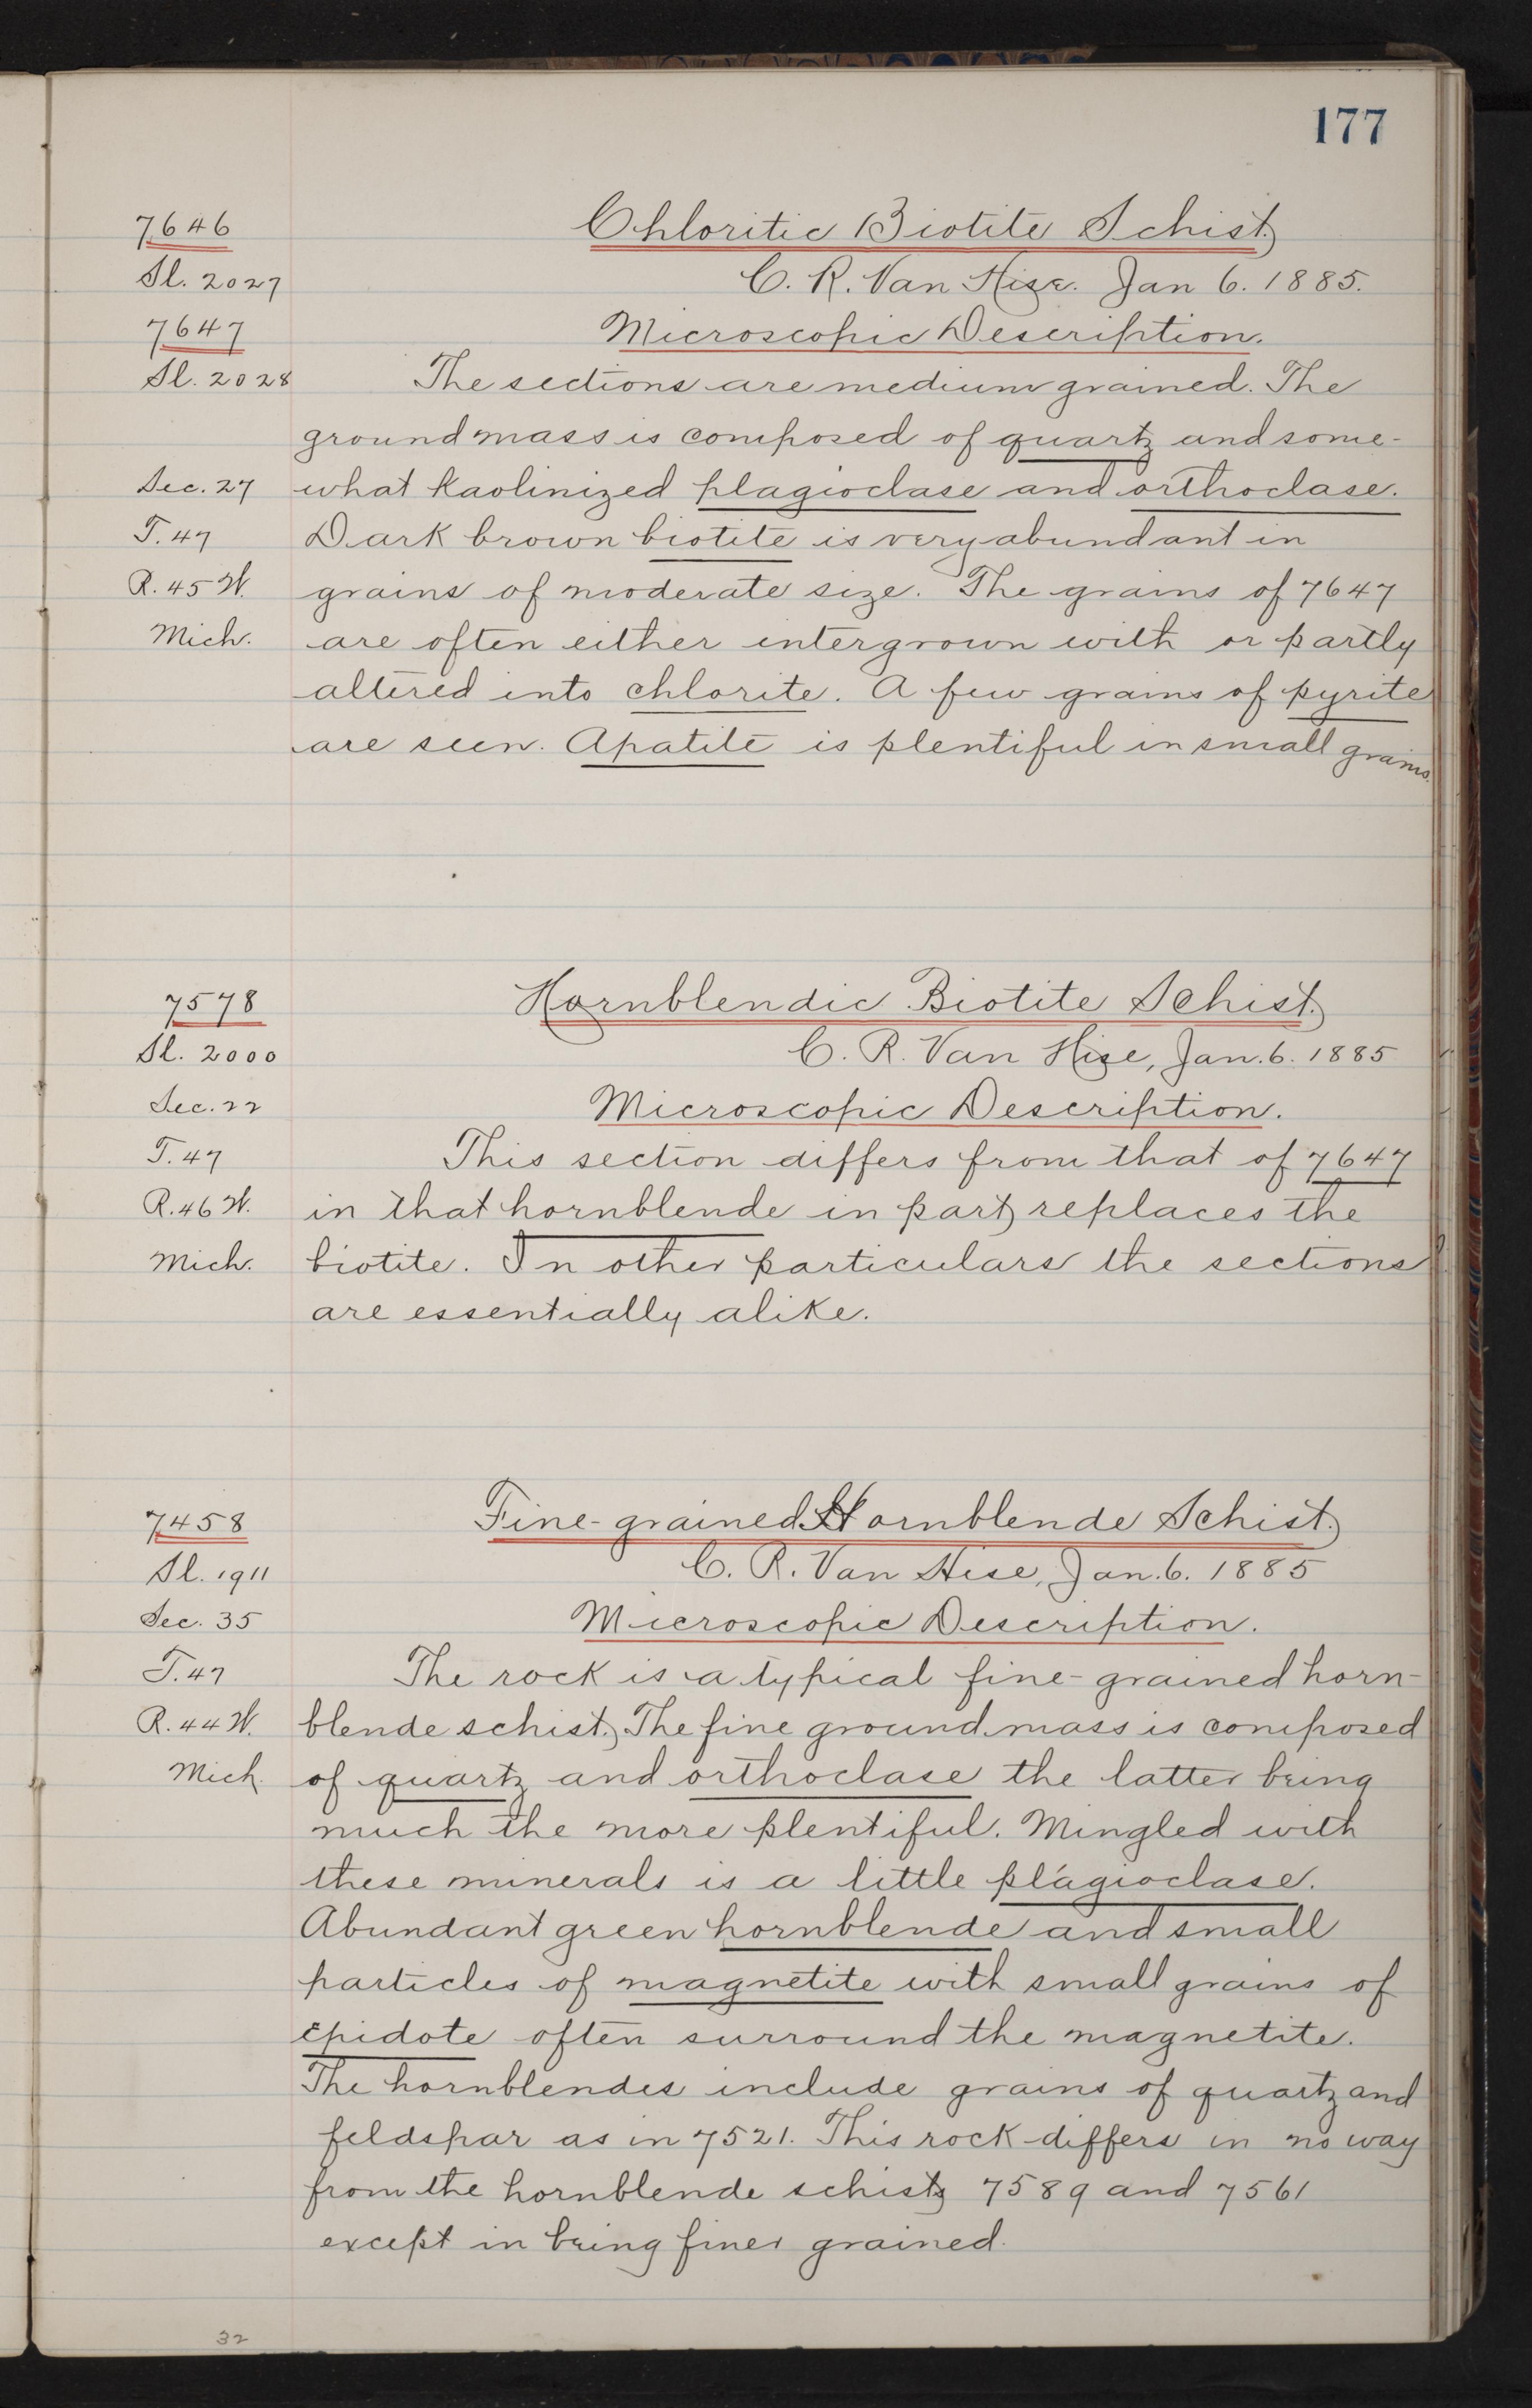 177
7646
Chloritic Biotite Schist
Sl. 2027
C. R. Van Hise. Jan 6. 1885.
7647
Microscopic Description.
Sl. 2028
The sections are medium grained. The
groundmass is composed of quartz and some-
Sec. 27
what kaolinized plagioclase and orthoclase.
T. 47
Dark brown biotite is very abundant in
R. 45 W.
grains of moderate size. The grains of 7647
Mich.
are often either intergrown with or partly
altered into chlorite. A few grains of pyrite
are seen. Apatite is plentiful in small grains.
7578
Hornblendic Biotite Schist.
Sl. 2000
C. R. Van Hise, Jan. 6. 1885
Sec. 22
Microscopic Description.
T. 47
This section differs from that of 7647
R. 46 W.
in that hornblende in part replaces the
Mich.
biotite. In other particulars the sections
are essentially alike.
7458
Fine-grained Hornblende Schist.
Sl. 1911
C. R. Van Hise, Jan. 6. 1885
Sec. 35
Microscopic Description.
T. 47
The rock is a typical fine-grained horn-
R. 44 W.
blende schist. The fine groundmass is composed
Mich.
of quartz and orthoclase the latter being
much the more plentiful. Mingled with
these minerals is a little plagioclase.
Abundant green hornblende and small
particles of magnetite with small grains of
epidote often surround the magnetite.
The hornblendes include grains of quartz and
feldspar as in 7521. This rock differs in no way
from the hornblende schists 7589 and 7561
except in being finer grained.
32